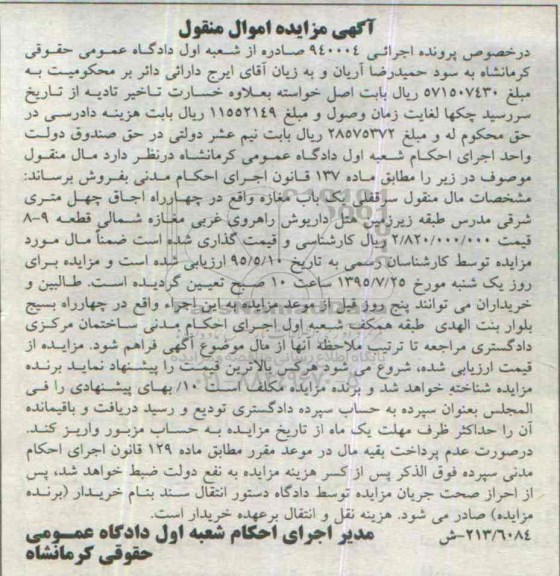 آگهی مزایده اموال منقول
درخصوص پرونده اجرائی ۹۴۰۰۰۴ صادره از شعبه اول دادگاه عمومی حقوقی
کرمانشاه به سود حمیدرضا آریان و به زیان آقای ایرج دارائی دائر بر محکومیت به
مبلغ ۵۷۱۵۰۷۴۳۰ ریال بابت اصل خواسته بعلاوه خسارت تاخیر تادیه از تاریخ
سررسید چکها لغایت زمان وصول و مبلغ ۱۱۵۵۲۱۴۹ ریال بابت هزینه دادرسی در
حق محکوم له و مبلغ ۲۸۵۷۵۳۷۲ ریال بابت نیم عشر دولتی در حق صندوق دولت
واحد اجرای احکام شعبه اول دادگاه عمومی کرمانشاه درنظر دارد مال منقول
موصوف در زیر را مطابق ماده ۱۳۷ قانون اجرای احکام مدنی بفروش برساند:
مشخصات مال منقول سرقفلی یک باب مغازه واقع در چهارراه اجاق چهل متری
شرقی مدرس طبقه زیرزمین هتل داریوش راهروی غربی مغازه شمالی قطعه ۹-۸
قیمت ۲/۸۲۰/۰۰۰/۰۰۰ ریال کارشناسی و قیمت گذاری شده است ضمناً مال مورد
مزایده توسط کارشناسان رسمی به تاریخ ۹۵/۵/۱۰ ارزیابی شده است و مزایده برای
روز یک شنبه مورخ ۱۳۹۵/۷/۲۵ ساعت ۱۰ صبح تعیین گردیده است. طالبین و
خریداران می توانند پنج روز قبل از موعد مزایده به این اجراء واقع در چهارراه بسیج
بلوار بنت الهدی طبقه همکف شعبه اول اجرای احکام مدنی ساختمان مرکزی
دادگستری مراجعه تا ترتیب ملاحظه آنها از مال موضوع آگهی فراهم شود. مزایده از
قیمت ارزیابی شده، شروع می شود هرکس بالاترین قیمت را پیشنهاد نماید برنده
مزایده شناخته خواهد شد و برنده مزایده مکلف است ۱۰٪ بهای پیشنهادی را فی
المجلس بعنوان سپرده به حساب سپرده دادگستری تودیع و رسید دریافت و باقیمانده
آن را حداکثر ظرف مهلت یک ماه از تاریخ مزایده به حساب مزبور واریز کند.
درصورت عدم پرداخت بقیه مال در موعد مقرر مطابق ماده ۱۲۹ قانون اجرای احکام
مدنی سپرده فوق الذکر پس از کسر هزینه مزایده به نفع دولت ضبط خواهد شد، پس
از احراز صحت جریان مزایده توسط دادگاه دستور انتقال سند بنام خریدار (برنده
مزایده) صادر می شود. هزینه نقل و انتقال برعهده خریدار است.
۲۱۳/۶۰۸۴-ش مدیر اجرای احکام شعبه اول دادگاه عمومی
حقوقی کرمانشاه